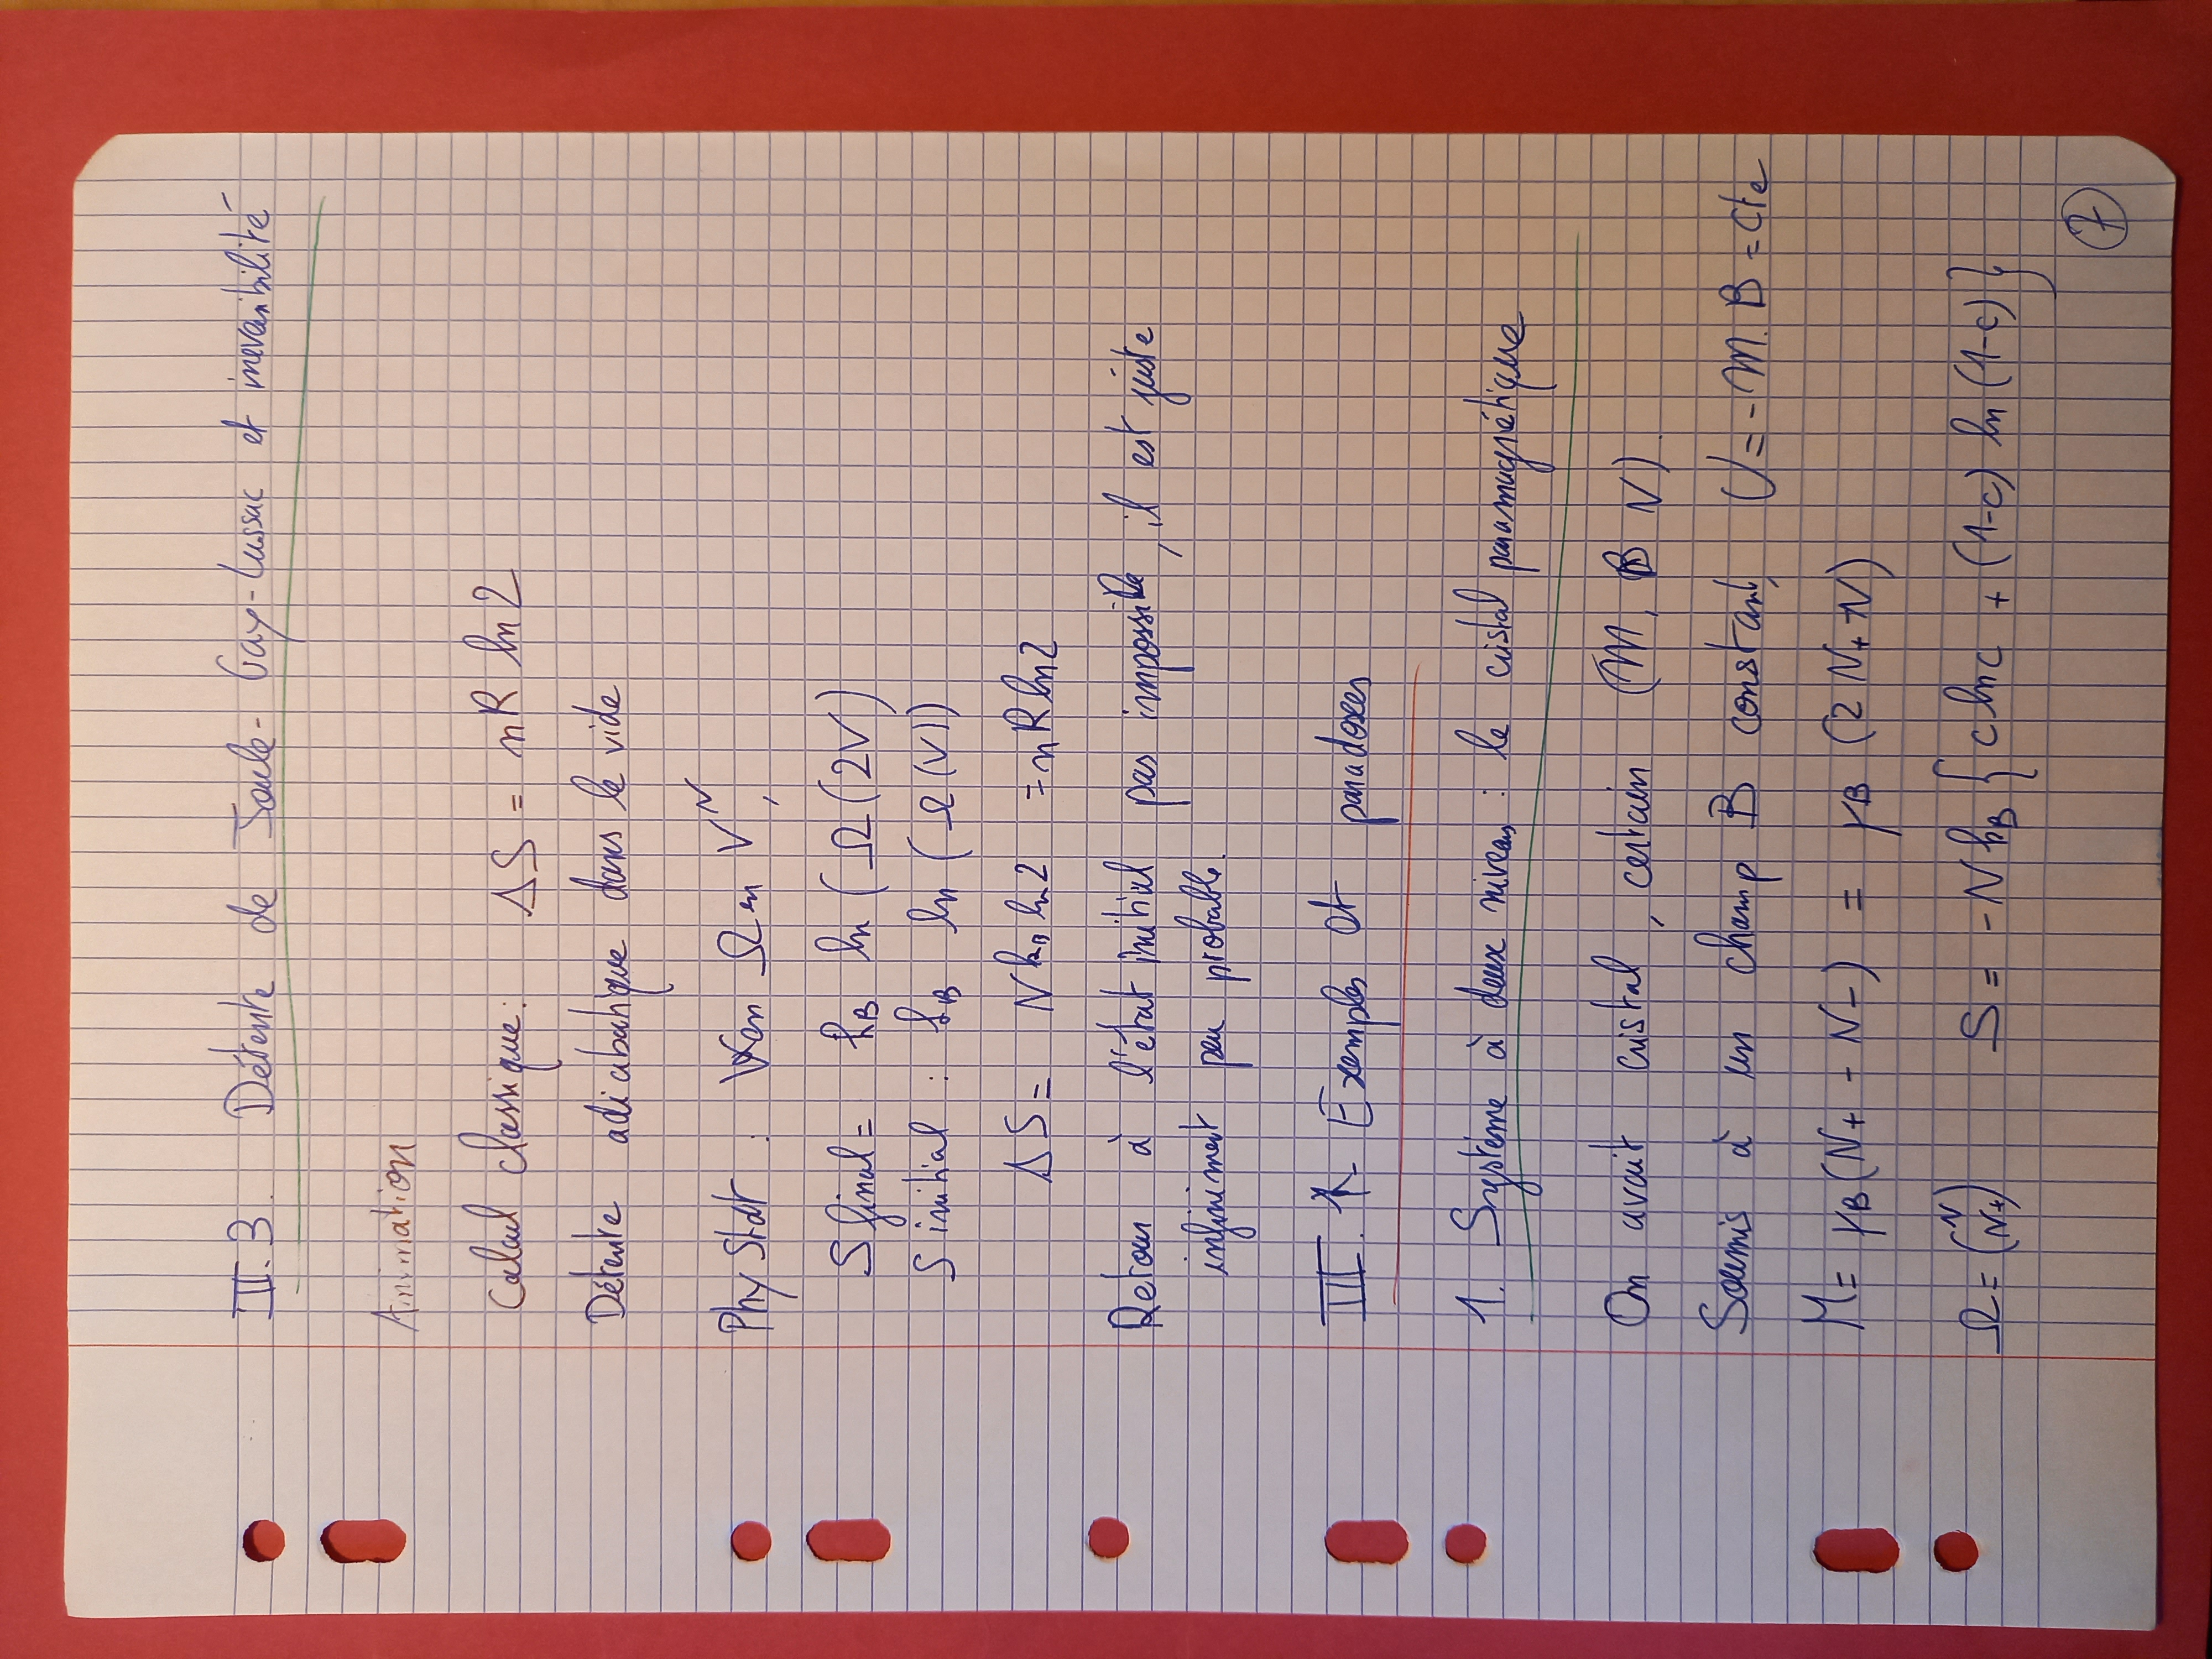 II.3. Détente de Joule-Gay-Lussac et irreversibilité
Animation
Calcul classique: ΔS = nR ln 2
Détente adiabatique dans le vide
Phy Stat : Ω en V^N,
S final = k_B ln (Ω(2V))
S initial : k_B ln (Ω(V))
ΔS = N k_B ln 2 = nR ln 2
Retour à l'état initial pas impossible, il est juste
infiniment peu probable.
III. Exemples et paradoxes
1. Système à deux niveaux : le cristal paramagnétique
On avait cristal, certain (M, B N).
Soumis à un champ B constant, U = - M. B = cte
M = μ_B (N+ - N-) = μ_B (2 N+ - N)
Ω = (N N+) S = - N k_B { c ln c + (1-c) ln (1-c) }
7